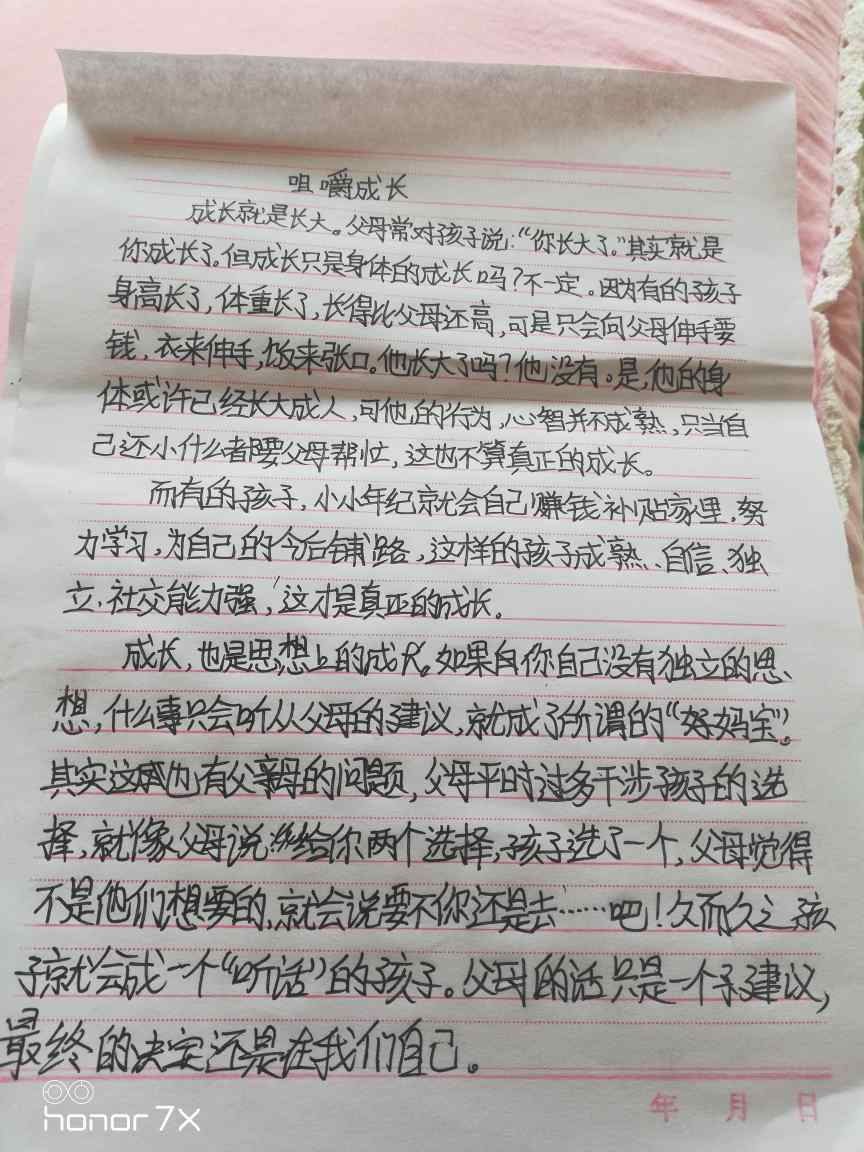 咀嚼成长
成长就是长大。父母常对孩子说:“你长大了。”其实就是
你成长了。但成长只是身体的成长吗?不一定。因为有的孩子
身高长了,体重长了,长得比父母还高,可是只会向父母伸手要
钱,衣来伸手,饭来张口。他长大了吗?他没有。是,他的身
体或许已经长大成人,可他的行为,心智并不成熟,只当自
己还小什么都要父母帮忙,这也不算真正的成长。
而有的孩子,小小年纪就会自己赚钱补贴家里,努
力学习,为自己的今后铺路,这样的孩子成熟、自信、独
立,社交能力强,这才是真正的成长。
成长,也是思想上的成长。如果你自己没有独立的思
想,什么事只会听从父母的建议,就成了所谓的“好妈宝”。
其实这也有父母的问题,父母平时过多干涉孩子的选
择,就像父母说:“给你两个选择,孩子选了一个,父母觉得
不是他们想要的,就会说要不你还是去……吧!久而久之孩
子就会成一个“听话”的孩子。父母的话只是一个建议,
最终的决定还是在我们自己。
年 月 日
honor 7X